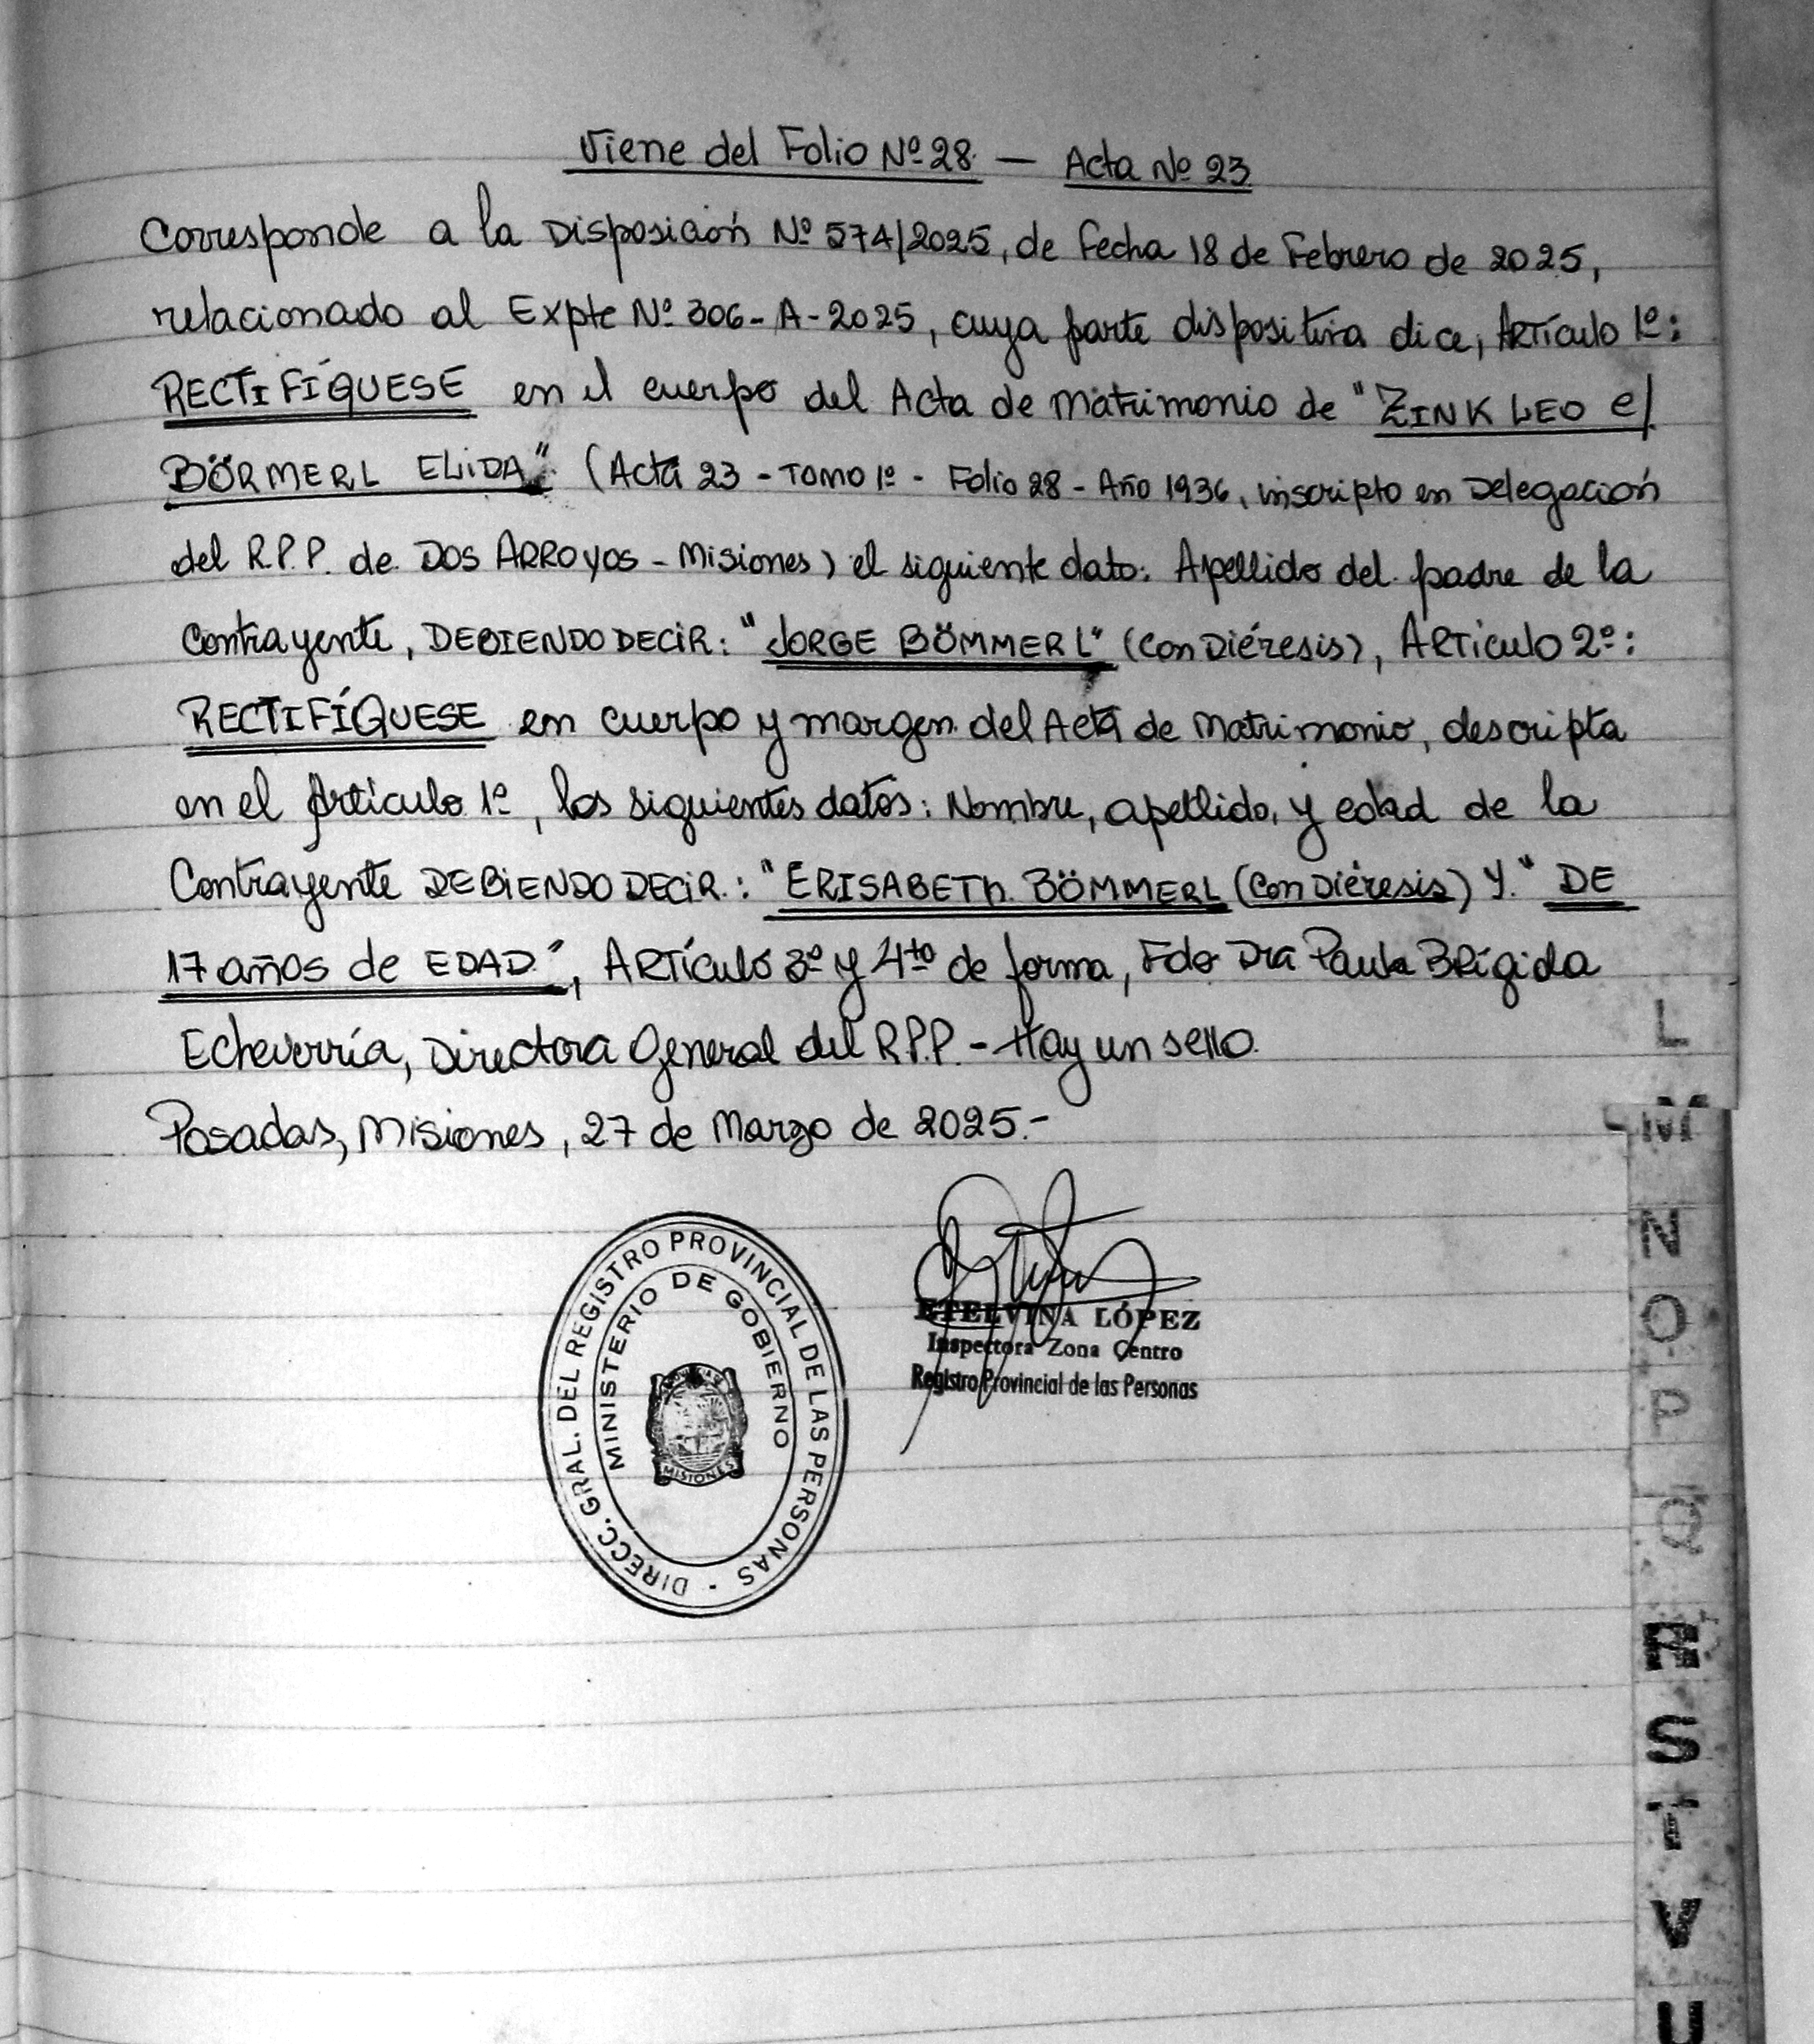 Viene del Folio Nº 28 — Acta Nº 23
Corresponde a la Disposición Nº 574/2025, de Fecha 18 de Febrero de 2025,
relacionado al Expte Nº 306-A-2025, cuya parte dispositiva dice, Artículo 1º:
RECTIFÍQUESE en el cuerpo del Acta de Matrimonio de "ZINK LEO e/
BÖRMERL ELIDA" (Acta 23 - TOMO 1º - Folio 28 - Año 1936, inscripto en Delegación
del R.P.P. de DOS ARROYOS - Misiones) el siguiente dato: Apellido del padre de la
Contrayente, DEBIENDO DECIR: "JORGE BÖMMERL" (Con Diéresis), ARTÍCULO 2º:
RECTIFÍQUESE en cuerpo y margen del Acta de Matrimonio, descripta
en el Artículo 1º, los siguientes datos: Nombre, apellido, y edad de la
Contrayente DEBIENDO DECIR.: "ERISABETh BÖMMERL (Con Diéresis) Y." DE
17 años de EDAD", ARTÍCULO 3º y 4to de forma, Fdo Dra Paula Brígida
Echeverría, Directora General del R.P.P. - Hay un sello.
Posadas, Misiones, 27 de Marzo de 2025.-
DIRECC. GRAL. DEL REGISTRO PROVINCIAL DE LAS PERSONAS -
MINISTERIO DE GOBIERNO
MISIONES
ETELVINA LÓPEZ
Inspectora Zona Centro
Registro Provincial de las Personas
L
M
N
O
P
Q
R
S
T
V
U